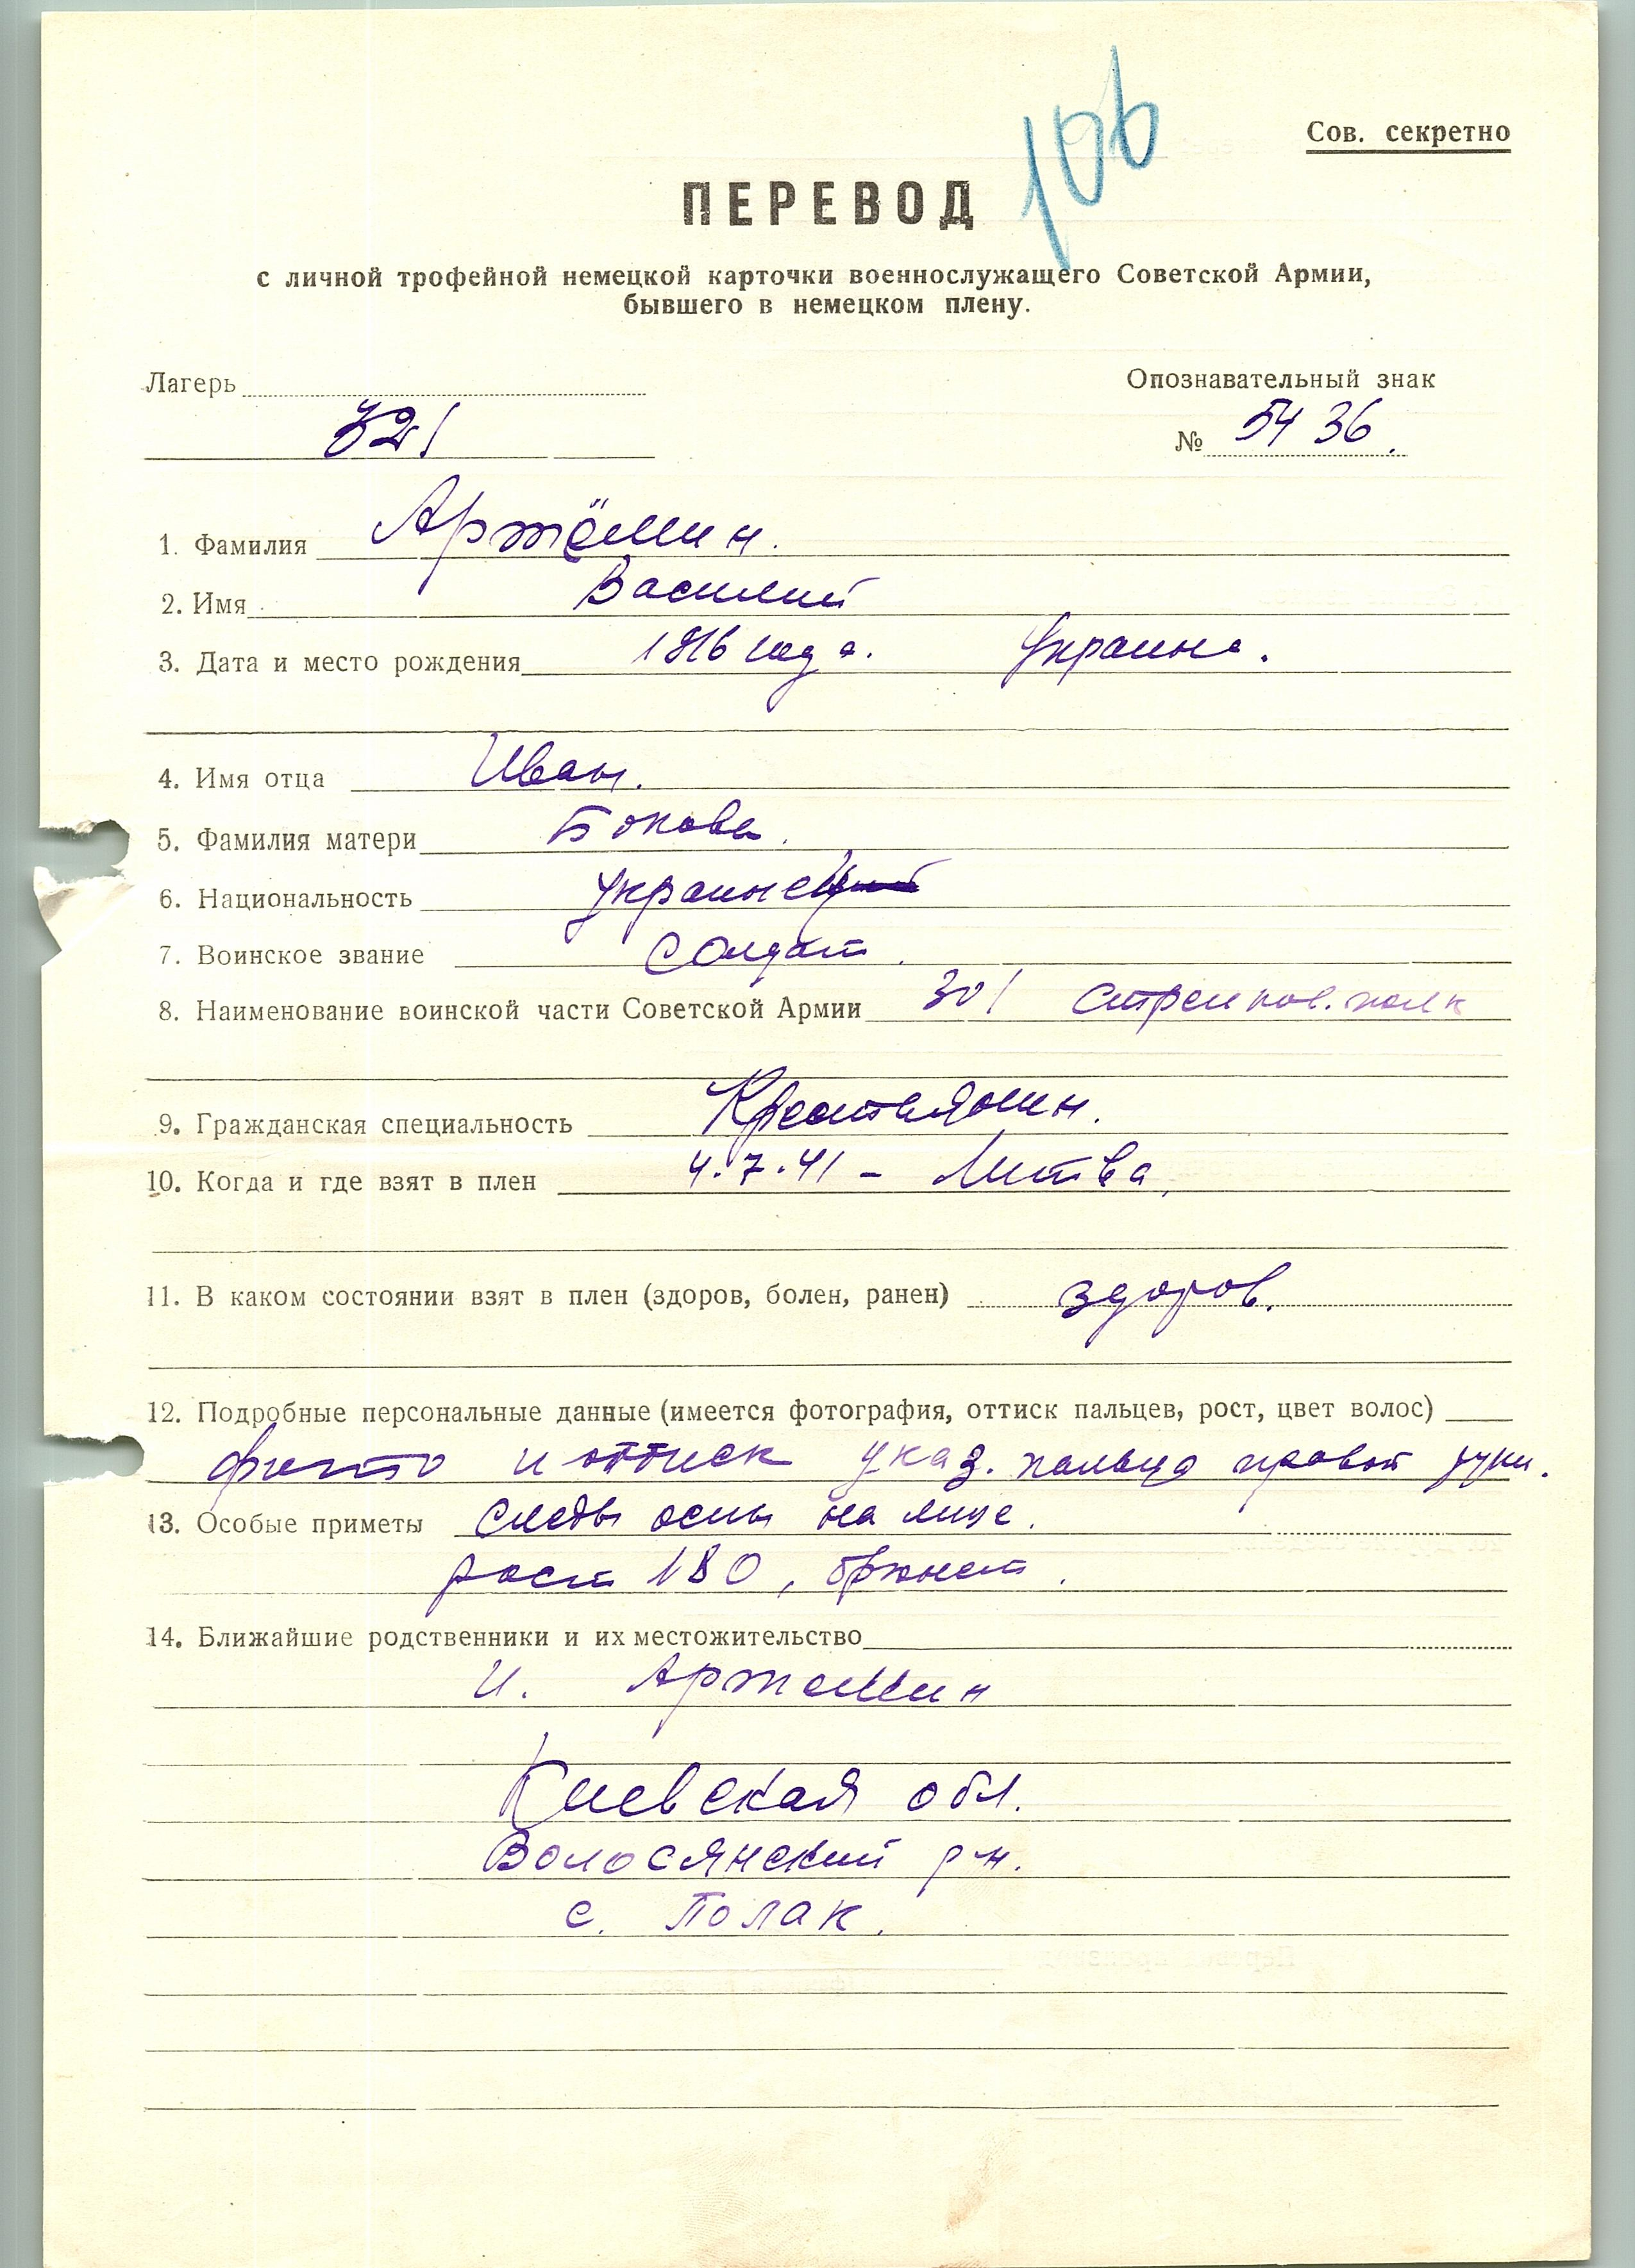 106
Сов. секретно
ПЕРЕВОД
с личной трофейной немецкой карточки военнослужащего Советской Армии,
бывшего в немецком плену.
Лагерь
Опознавательный знак
321
№ 5436.
1. Фамилия Артёмин.
2. Имя Василий
3. Дата и место рождения 1916 года. Украина.
4. Имя отца Иван.
5. Фамилия матери Бокова.
6. Национальность украинец
7. Воинское звание Солдат.
8. Наименование воинской части Советской Армии 301 Стрелков. полк
9. Гражданская специальность Крестьянин.
10. Когда и где взят в плен 4.7.41 – Литва.
11. В каком состоянии взят в плен (здоров, болен, ранен) здоров.
12. Подробные персональные данные (имеется фотография, оттиск пальцев, рост, цвет волос)
фото и оттиск указ. пальца правой руки.
13. Особые приметы следы оспы на лице.
рост 180, брюнет.
14. Ближайшие родственники и их местожительство
И. Артемин
Киевская обл.
Волосянский р-н.
с. Полак.